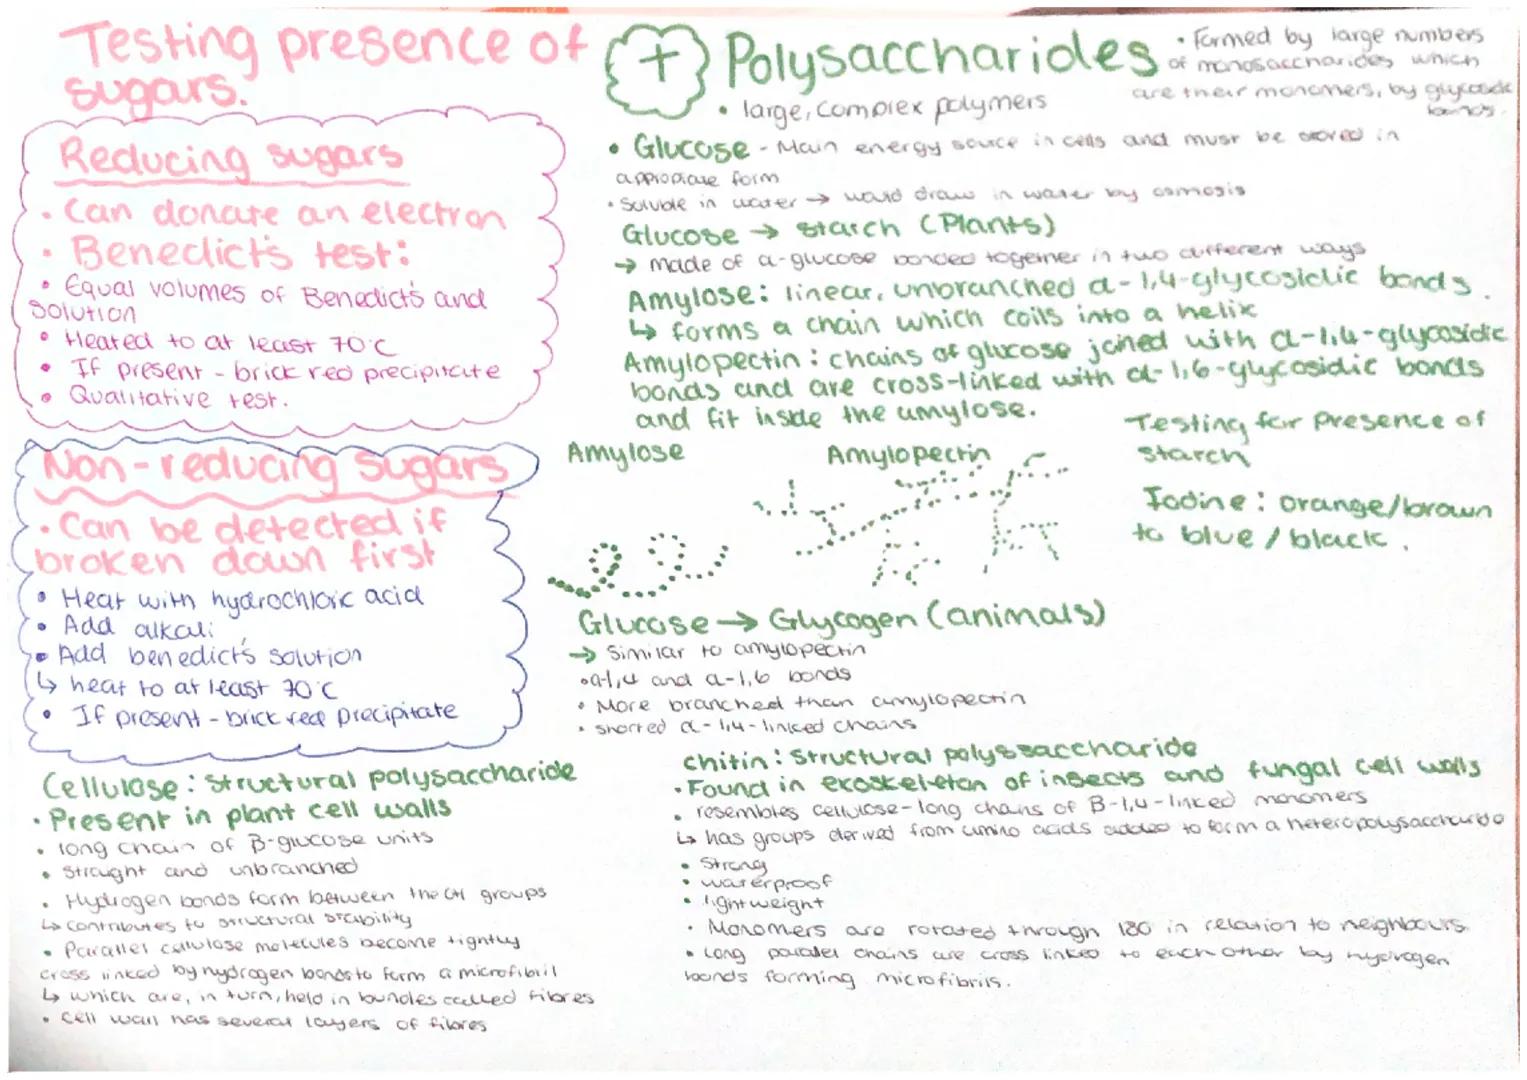 Testing presence of
sugars.
Reducing sugars
• Can donate an electron
• Benedict's test:
• Equal volumes of Benedict's and
solution
• Heated to at least 70°C
• If present - brick red precipitate
• Qualitative test.
Non-reducing sugars
• Can be detected if
broken down first
• Heat with hydrochloric acid
• Add alkali
• Add benedict's solution
↳ heat to at least 70°C
• If present - brick red precipitate
+ Polysaccharides
• Formed by large numbers
of monosaccharides which
are their monomers, by glycosidic
bonds.
• large, complex polymers
• Glucose - Main energy source in cells and must be stored in
appropriate form
• Soluble in water → would draw in water by osmosis
Glucose → starch (Plants)
→ made of α-glucose bonded together in two different ways
Amylose: linear, unbranched α-1,4-glycosidic bonds.
↳ forms a chain which coils into a helix
Amylopectin: chains of glucose joined with α-1,4-glycosidic
bonds and are cross-linked with α-1,6-glycosidic bonds
and fit inside the amylose.
Amylose
Amylopectin
Testing for presence of
starch
Iodine: orange/brown
to blue/black.
Glucose → Glycogen (animals)
→ Similar to amylopectin
• α-1,4 and α-1,6 bonds
• More branched than amylopectin
• shorted α-1,4-linked chains
Cellulose: structural polysaccharide
• Present in plant cell walls
• long chain of β-glucose units
• Straight and unbranched
• Hydrogen bonds form between the OH groups
↳ contributes to structural stability
• Parallel cellulose molecules become tightly
cross linked by hydrogen bonds to form a microfibril
↳ which are, in turn, held in bundles called fibres
• Cell wall has several layers of fibres
chitin: structural polyssaccharide
• Found in exoskeleton of insects and fungal cell walls
• resembles cellulose - long chains of β-1,4-linked monomers
↳ has groups derived from amino acids added to form a heteropolysaccharide
• Strong
• waterproof
• lightweight
• Monomers are rotated through 180 in relation to neighbours.
• Long parallel chains are cross linked to each other by hydrogen
bonds forming microfibrils.